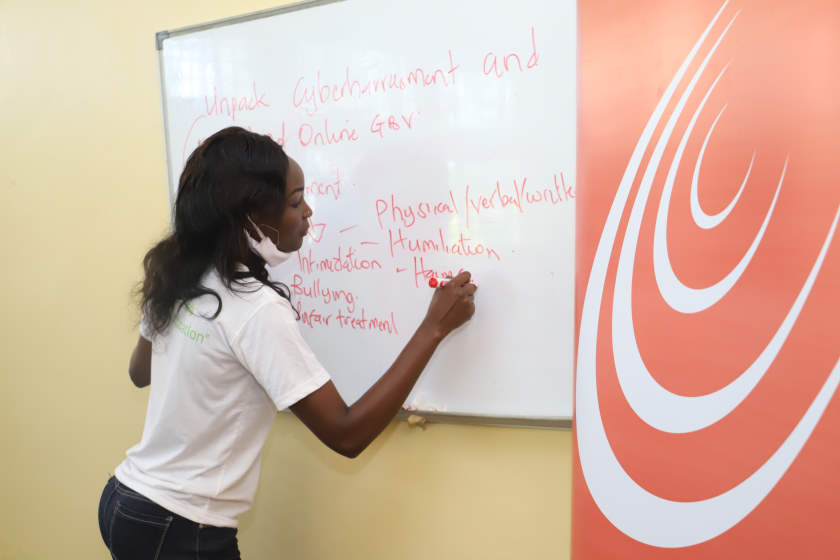 Unpack Cyberharrasment and
Online GBV.
Physical/verbal/written
- Humiliation
Intimidation -
Bullying.
Unfair treatment